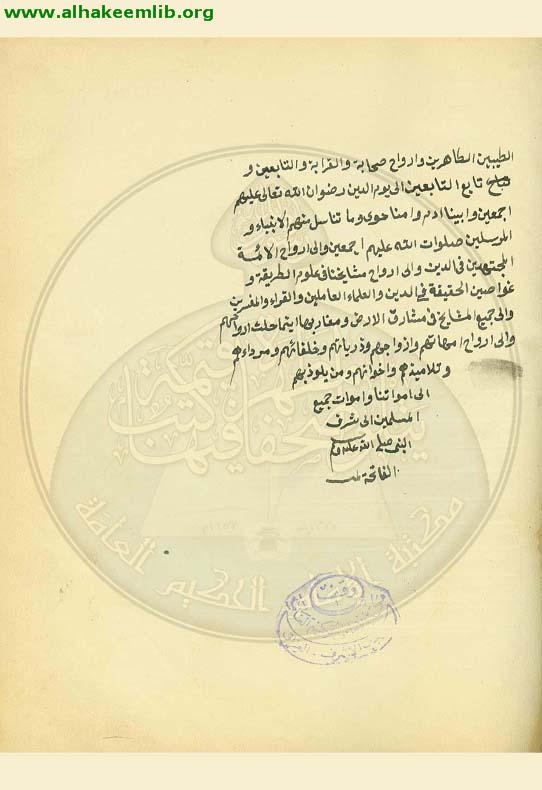 www.alhakeemlib.org
الطيبين الطاهرين وارواح صحابة والقرابة والتابعين و
تابع التابعين الى يوم الدين رضوان الله تعالى عليهم
اجمعين وابينا ادم وامنا حوى وما تناسل منهم الانبياء و
المرسلين صلوات الله عليهم اجمعين والى ارواح الائمة
المجتهدين فى الدين والى ارواح مشايخنا فى علوم الطريقة و
غواصين الحقيقة فى الدين والعلماء العاملين والقراء والمفسرين
والى جميع المشايخ فى مشارق الارض ومغاربها اينما حلت ارواحهم
والى ارواح امهاتهم وازواجهم وذرياتهم وخلفائهم ومرداءهم
وتلاميذهم واخوانهم ومن يلوذ بهم
الى امواتنا واموات جميع
المسلمين الى شرف
النبى صلى الله عليه وسلم
الفاتحة
مكتبة الامام الحكيم العامة
وقف